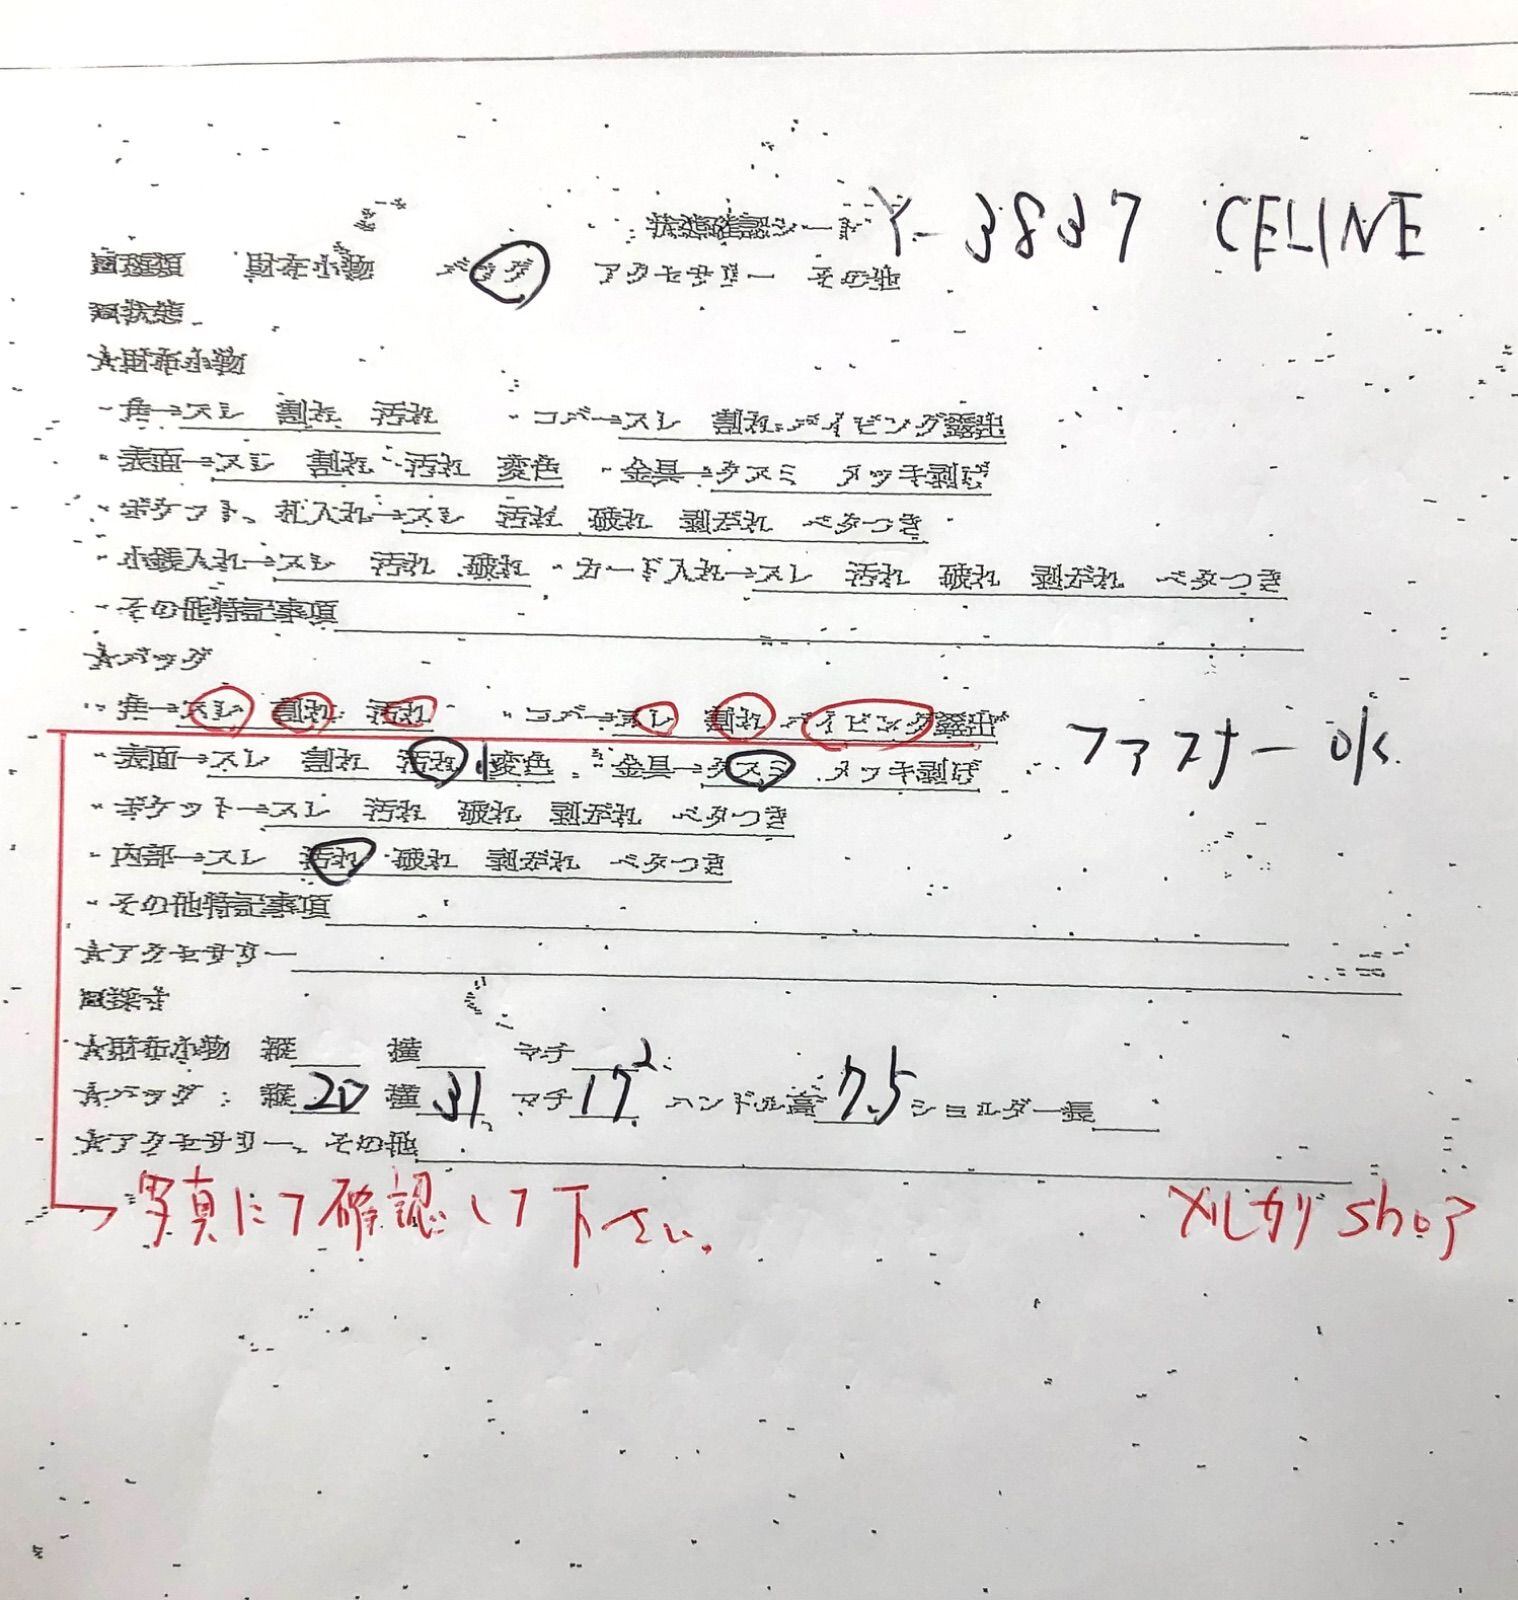 状態確認シート Y-3837 CELINE
□種類 財布小物 バッグ アクセサリー その他
□状態
☆財布小物
・角→スレ 割れ 汚れ ・コバ→スレ 割れ パイピング露出
・表面→スレ 割れ 汚れ 変色 ・金具→クスミ メッキ剥げ
・ポケット、札入れ→スレ 汚れ 破れ 剥がれ ベタつき
・小銭入れ→スレ 汚れ 破れ ・カード入れ→スレ 汚れ 破れ 剥がれ ベタつき
・その他特記事項
☆バッグ
・角→スレ 割れ 汚れ ・コバ→スレ 割れ パイピング露出
・表面→スレ 割れ 汚れ 変色 ・金具→クスミ メッキ剥げ ファスナー O/K.
・ポケット→スレ 汚れ 破れ 剥がれ ベタつき
・内部→スレ 汚れ 破れ 剥がれ ベタつき
・その他特記事項
☆アクセサリー
□採寸
☆財布小物 縦 横 マチ
☆バッグ:縦20 横31 マチ17 ハンドル高7.5 ショルダー長
☆アクセサリー、その他
→写真にて確認して下さい。 メルカリshop